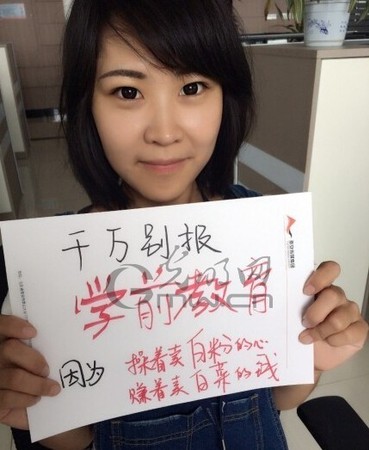 千万别报
学前教育
因为
操着卖白粉的心
赚着卖白菜的钱
光明网